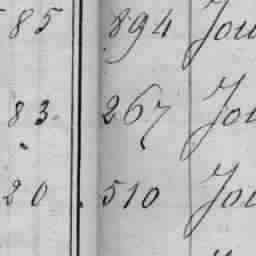 85 894 Jou
83 267 Jou
20 510 Jou